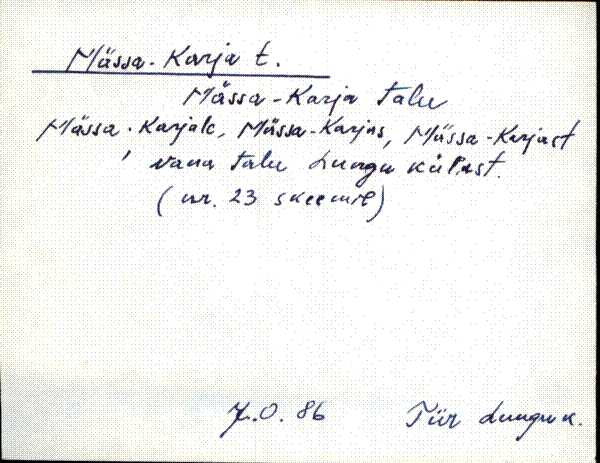 Mässa-Karja t.
Mässa-Karja talu
Mässa-Karjale, Mässa-Karjas, Mässa-Karjast
' vana talu Lungu külast.
(nr. 23 skeemil)
J.O. 86 Tür Lungu k.